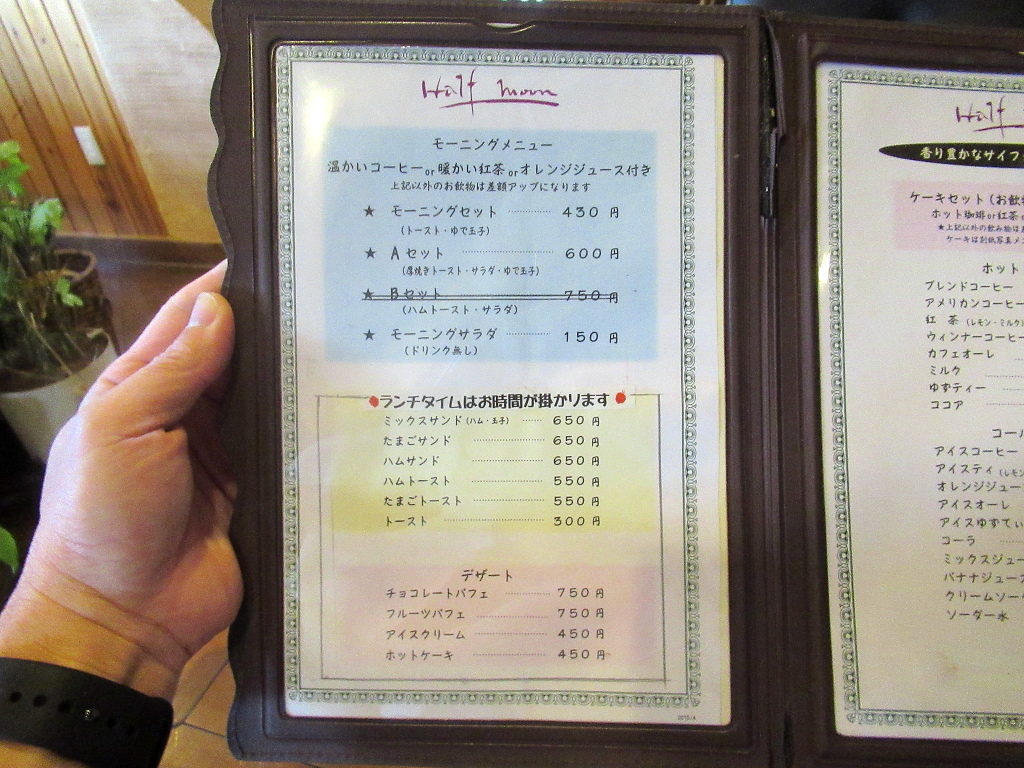 Half moon
モーニングメニュー
温かいコーヒーor暖かい紅茶orオレンジジュース付き
上記以外のお飲物は差額アップになります
★ モーニングセット ………… 430 円
(トースト・ゆで玉子)
★ Aセット ………… 600 円
(厚焼きトースト・サラダ・ゆで玉子)
★ Bセット 750 円
(ハムトースト・サラダ)
★ モーニングサラダ ………… 150 円
(ドリンク無し)
ランチタイムはお時間が掛かります
ミックスサンド(ハム・玉子) …… 650 円
たまごサンド ………… 650 円
ハムサンド ………… 650 円
ハムトースト ………… 550 円
たまごトースト ………… 550 円
トースト ………… 300 円
デザート
チョコレートパフェ ………… 750 円
フルーツパフェ ………… 750 円
アイスクリーム ………… 450 円
ホットケーキ ………… 450 円
Half
香り豊かなサイフ
ケーキセット(お飲
ホット珈琲or紅茶
★上記以外の飲み物は
ケーキは別紙写真メ
ホット
ブレンドコーヒー
アメリカンコーヒー
紅 茶 (レモン・ミルク
ウィンナーコーヒー
カフェオーレ
ミルク
ゆずティー
ココア
コール
アイスコーヒー
アイスティ(レモン
オレンジジュー
アイスオーレ
アイスゆずてぃ
コーラ
ミックスジュー
バナナジュース
クリームソー
ソーダー水